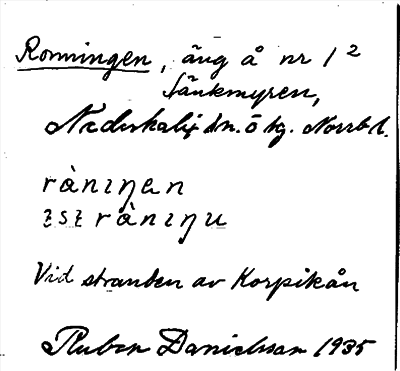 Ronningen, äng å nr 1²
Sänkmyren,
Nederkalix sn. ö tg. Norrb l.
ràniŋen
ràniŋu
Vid stranden av Korpikån
Ruben Danielsson 1935